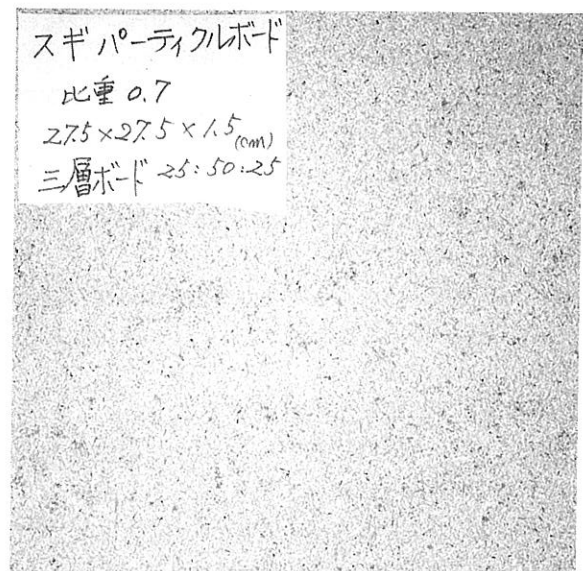 スギパーティクルボード
比重 0.7
27.5×27.5×1.5(cm)
三層ボード 25:50:25